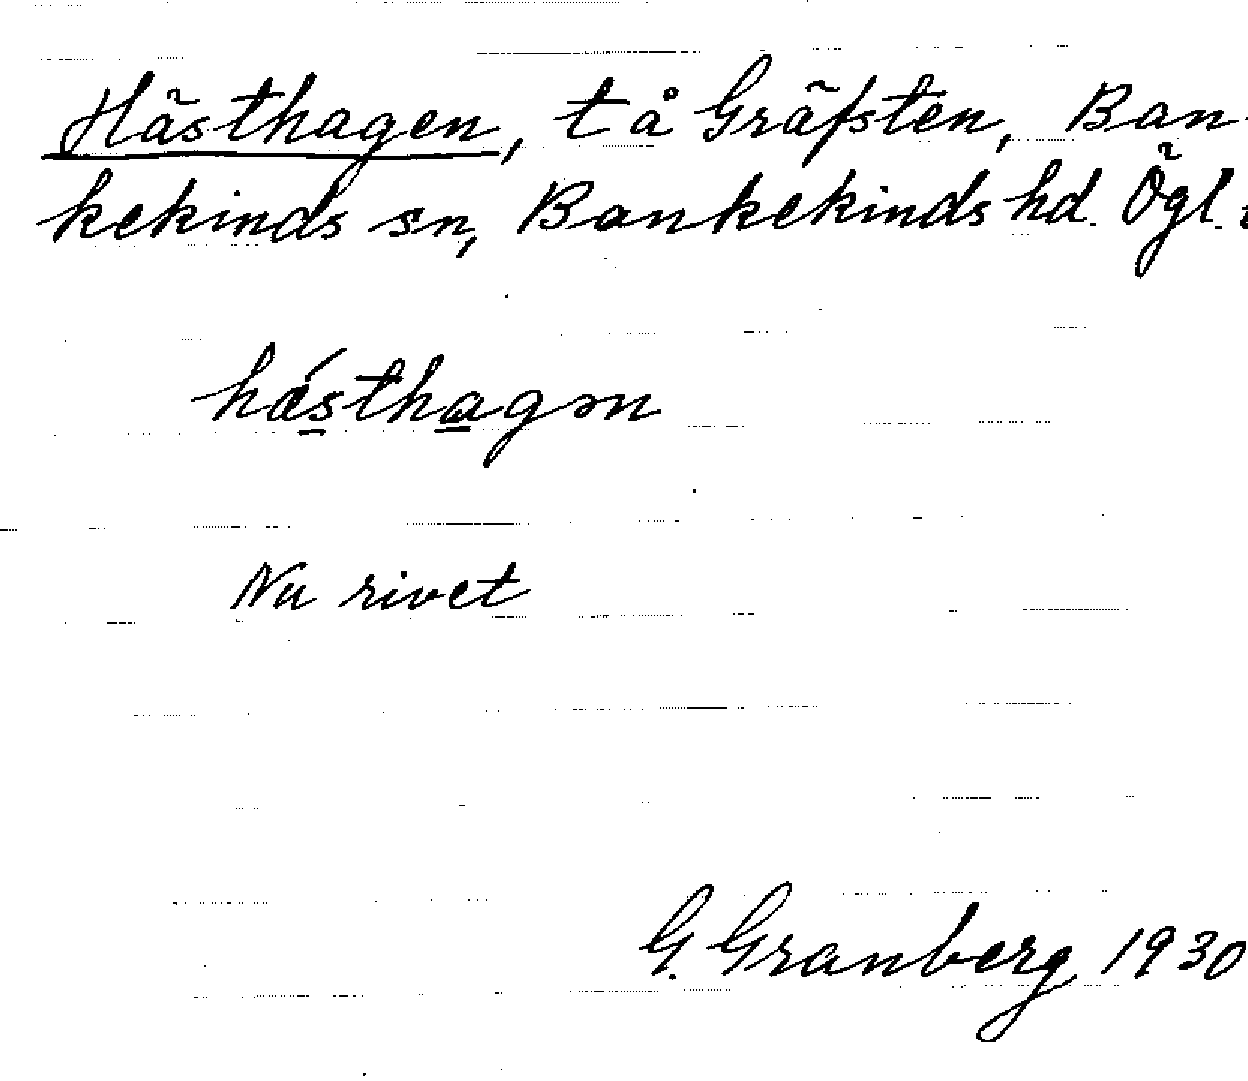 Hästhagen, t å Gräfsten, Ban-
kekinds sn, Bankekinds hd. Ögl.
hǽsthagən
Nu rivet
G. Granberg 1930